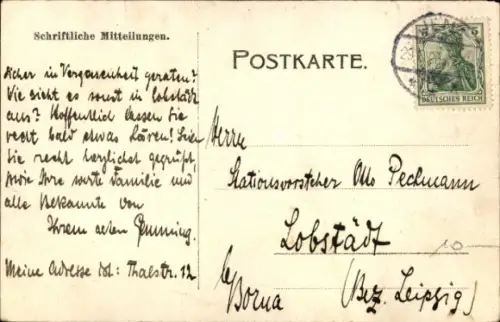 Schriftliche Mitteilungen.
sicher in Vergessenheit geraten?
Wie sieht es sonst in Lobstädt
aus? Hoffentlich lassen Sie
recht bald etwas hören! Seien
Sie recht herzlichst gegrüßt,
sowie Ihre werte Familie und
alle Bekannte von
Ihrem
Meine Adresse ist: Thalstr. 12
POSTKARTE.
DEUTSCHES REICH
Herrn
Stationsvorsteher Otto Pechmann
Lobstädt
b/ Borna (Bez. Leipzig)
10